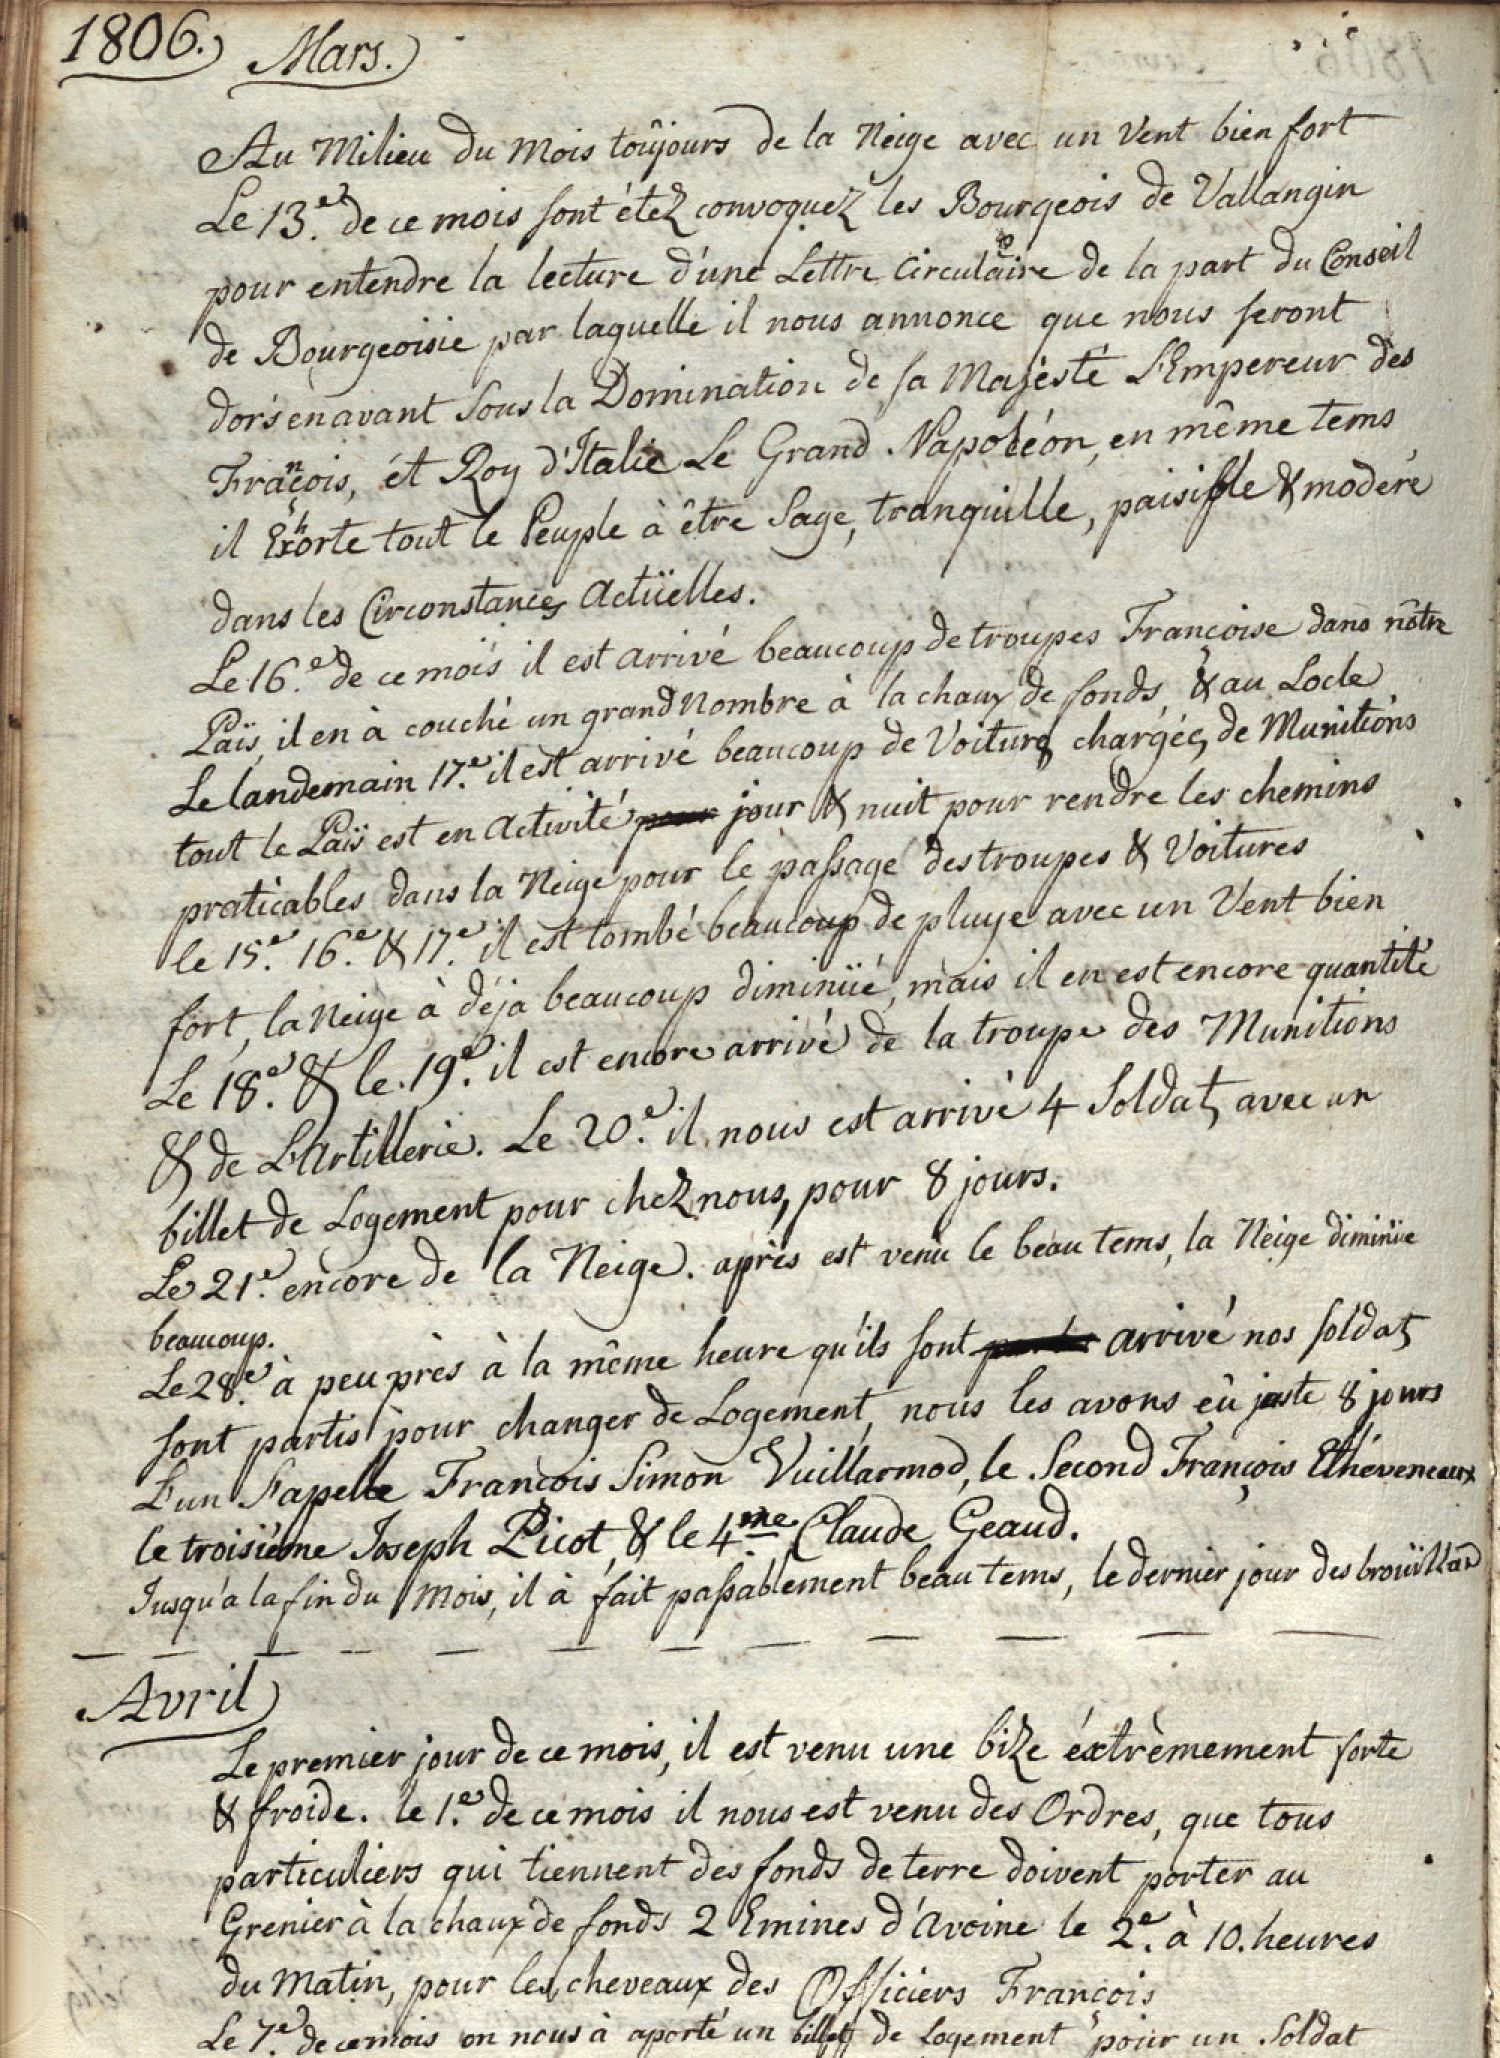 1806. Mars.
Au Milieu du Mois toûjours de la Neige avec un Vent bien fort
Le 13.e de ce mois sont étez convoquez les Bourgeois de Vallangin
pour entendre la lecture d'une Lettre Circulaire de la part du Conseil
de Bourgeoisie par laquelle il nous annonce que nous seront
dors'enavant Sous la Domination de sa Majésté L'Empereur des
François, ét Roy d'Italie Le Grand Napoléon, en même tems
il Exhorte tout le Peuple à être Sage, tranquille, paisible & modéré
dans les Circonstances Actüelles.
Le 16.e de ce mois il est arrivé beaucoup de troupes Françoise dans nôtre
Païs, il en à couché un grand Nombre à la chaux de fonds, & au Locle
Le landemain 17.e il est arrivé beaucoup de Voitures chargées de Munitions
tout le Païs est en Activité pour jour & nuit pour rendre les chemins
praticables dans la Neige pour le passage des troupes & Voitures
le 15.e 16.e & 17.e il est tombé beaucoup de pluye avec un Vent bien
fort, la Neige à déja beaucoup diminüé, mais il en est encore quantité
Le 18.e & le 19.e il est encore arrivé de la troupe des Munitions
& de L'Artillerie. Le 20.e il nous est arrivé 4 Soldats avec un
billet de Logement pour chez nous, pour 8 jours.
Le 21.e encore de la Neige. après est venu le beau tems, la Neige diminüe
beaucoup.
Le 28.e à peu près à la même heure qu'ils sont arrivé nos soldats
sont partis pour changer de Logement, nous les avons eû juste 8 jours
L'un s'apelle François Simon Vuillarmod, le Second François Ethéveneaux
le troisiéme Joseph Picot, & le 4.me Claude Geaud.
Jusqu'à la fin du Mois, il à fait passablement beau tems, le dernier jour des broüillard
Avril
Le premier jour de ce mois, il est venu une bize éxtrèmement forte
& froide. le 1.e de ce mois il nous est venu des Ordres, que tous
particuliers qui tiennent des fonds de terre doivent porter au
Grenier à la chaux de fonds 2 Emines d'Avoine le 2.e à 10. heures
du Matin, pour les cheveaux des Officiers François
Le 7.e de ce mois on nous à aporté un billet de Logement pour un Soldat